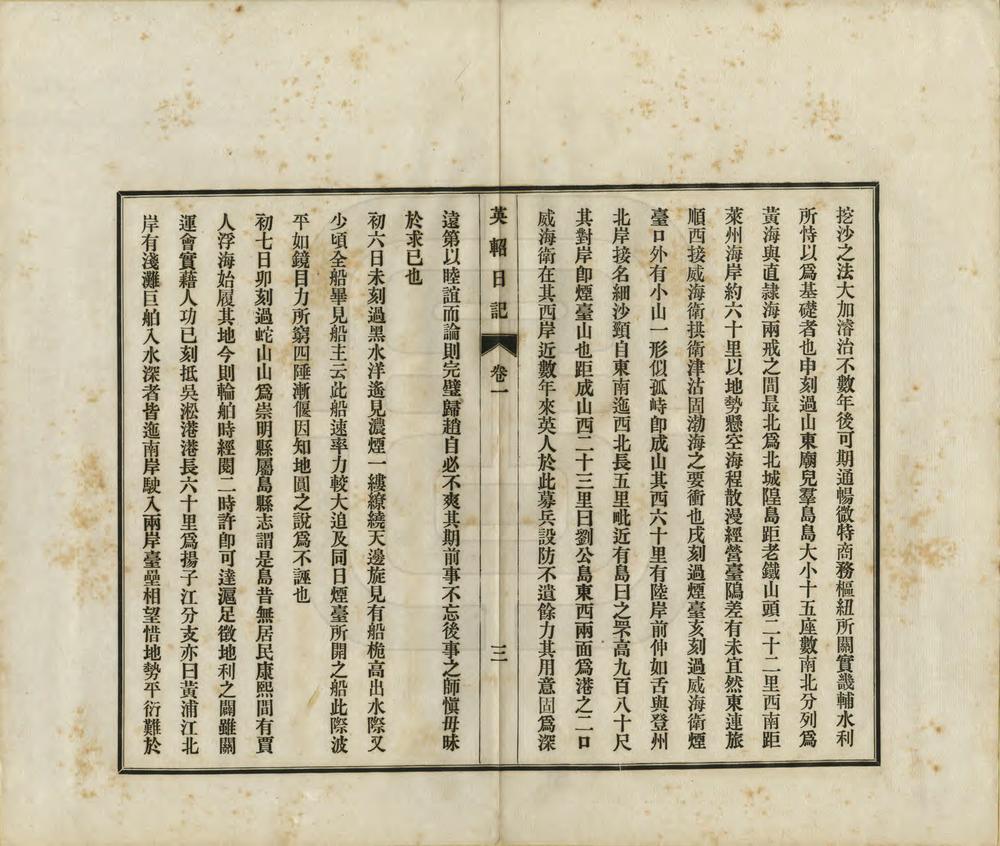 挖沙之法大加濬治不數年後可期通暢微特商務樞紐所關實畿輔水利
所恃以爲基礎者也申刻過山東廟兒羣島島大小十五座數南北分列爲
黃海與直隸海兩戒之間最北爲北城隍島距老鐵山頭二十二里西南距
萊州海岸約六十里以地勢懸空海程散漫經營臺隖差有未宜然東連旅
順西接威海衛拱衛津沽固渤海之要衝也戌刻過煙臺亥刻過威海衛煙
臺口外有小山一形似孤峙卽成山其西六十里有陸岸前伸如舌與登州
北岸接名細沙頸自東南迤西北長五里毗近有島曰之罘高九百八十尺
其對岸卽煙臺山也距成山西二十三里曰劉公島東西兩面爲港之二口
威海衛在其西岸近數年來英人於此募兵設防不遺餘力其用意固爲深
英軺日記 卷一 三
遠第以睦誼而論則完璧歸趙自必不爽其期前事不忘後事之師愼毋昧
於求已也
初六日未刻過黑水洋遙見濃煙一縷繚繞天邊旋見有船桅高出水際又
少頃全船畢見船主云此船速率力較大迫及同日煙臺所開之船此際波
平如鏡目力所窮四陲漸偃因知地圓之說爲不誣也
初七日卯刻過蛇山山爲崇明縣屬島縣志謂是島昔無居民康熙間有賈
人浮海始履其地今則輪舶時經閱二時許卽可達滬足徵地利之闢雖關
運會實藉人功已刻抵吳淞港港長六十里爲揚子江分支亦曰黃浦江北
岸有淺灘巨舶入水深者皆迤南岸駛入兩岸臺壘相望惜地勢平衍難於